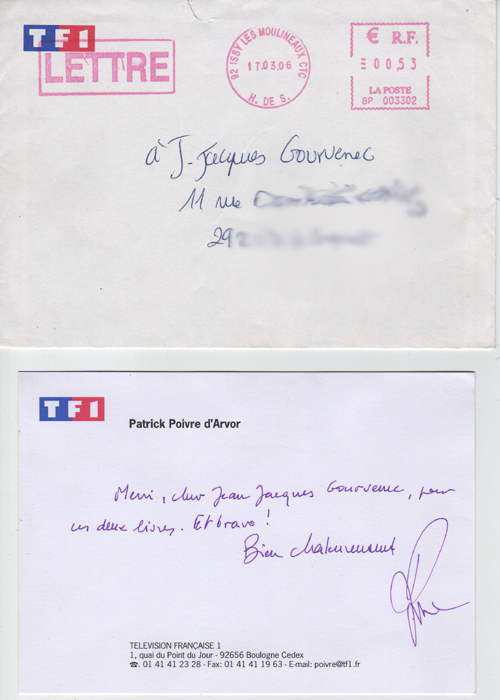 TF1
LETTRE
92 ISSY LES MOULINEAUX CTC
17.03.06
H. DE S.
€ R.F.
00,53
LA POSTE
BP 003302
à J-Jacques Gourvenec
11 rue
29
TF1
Patrick Poivre d'Arvor
Merci, cher Jean Jacques Gourvenec, pour
ces deux livres. Et bravo !
Bien chaleureusement
TELEVISION FRANÇAISE 1
1, quai du Point du Jour - 92656 Boulogne Cedex
☎. 01 41 41 23 28 - Fax: 01 41 41 19 63 - E-mail: poivre@tf1.fr